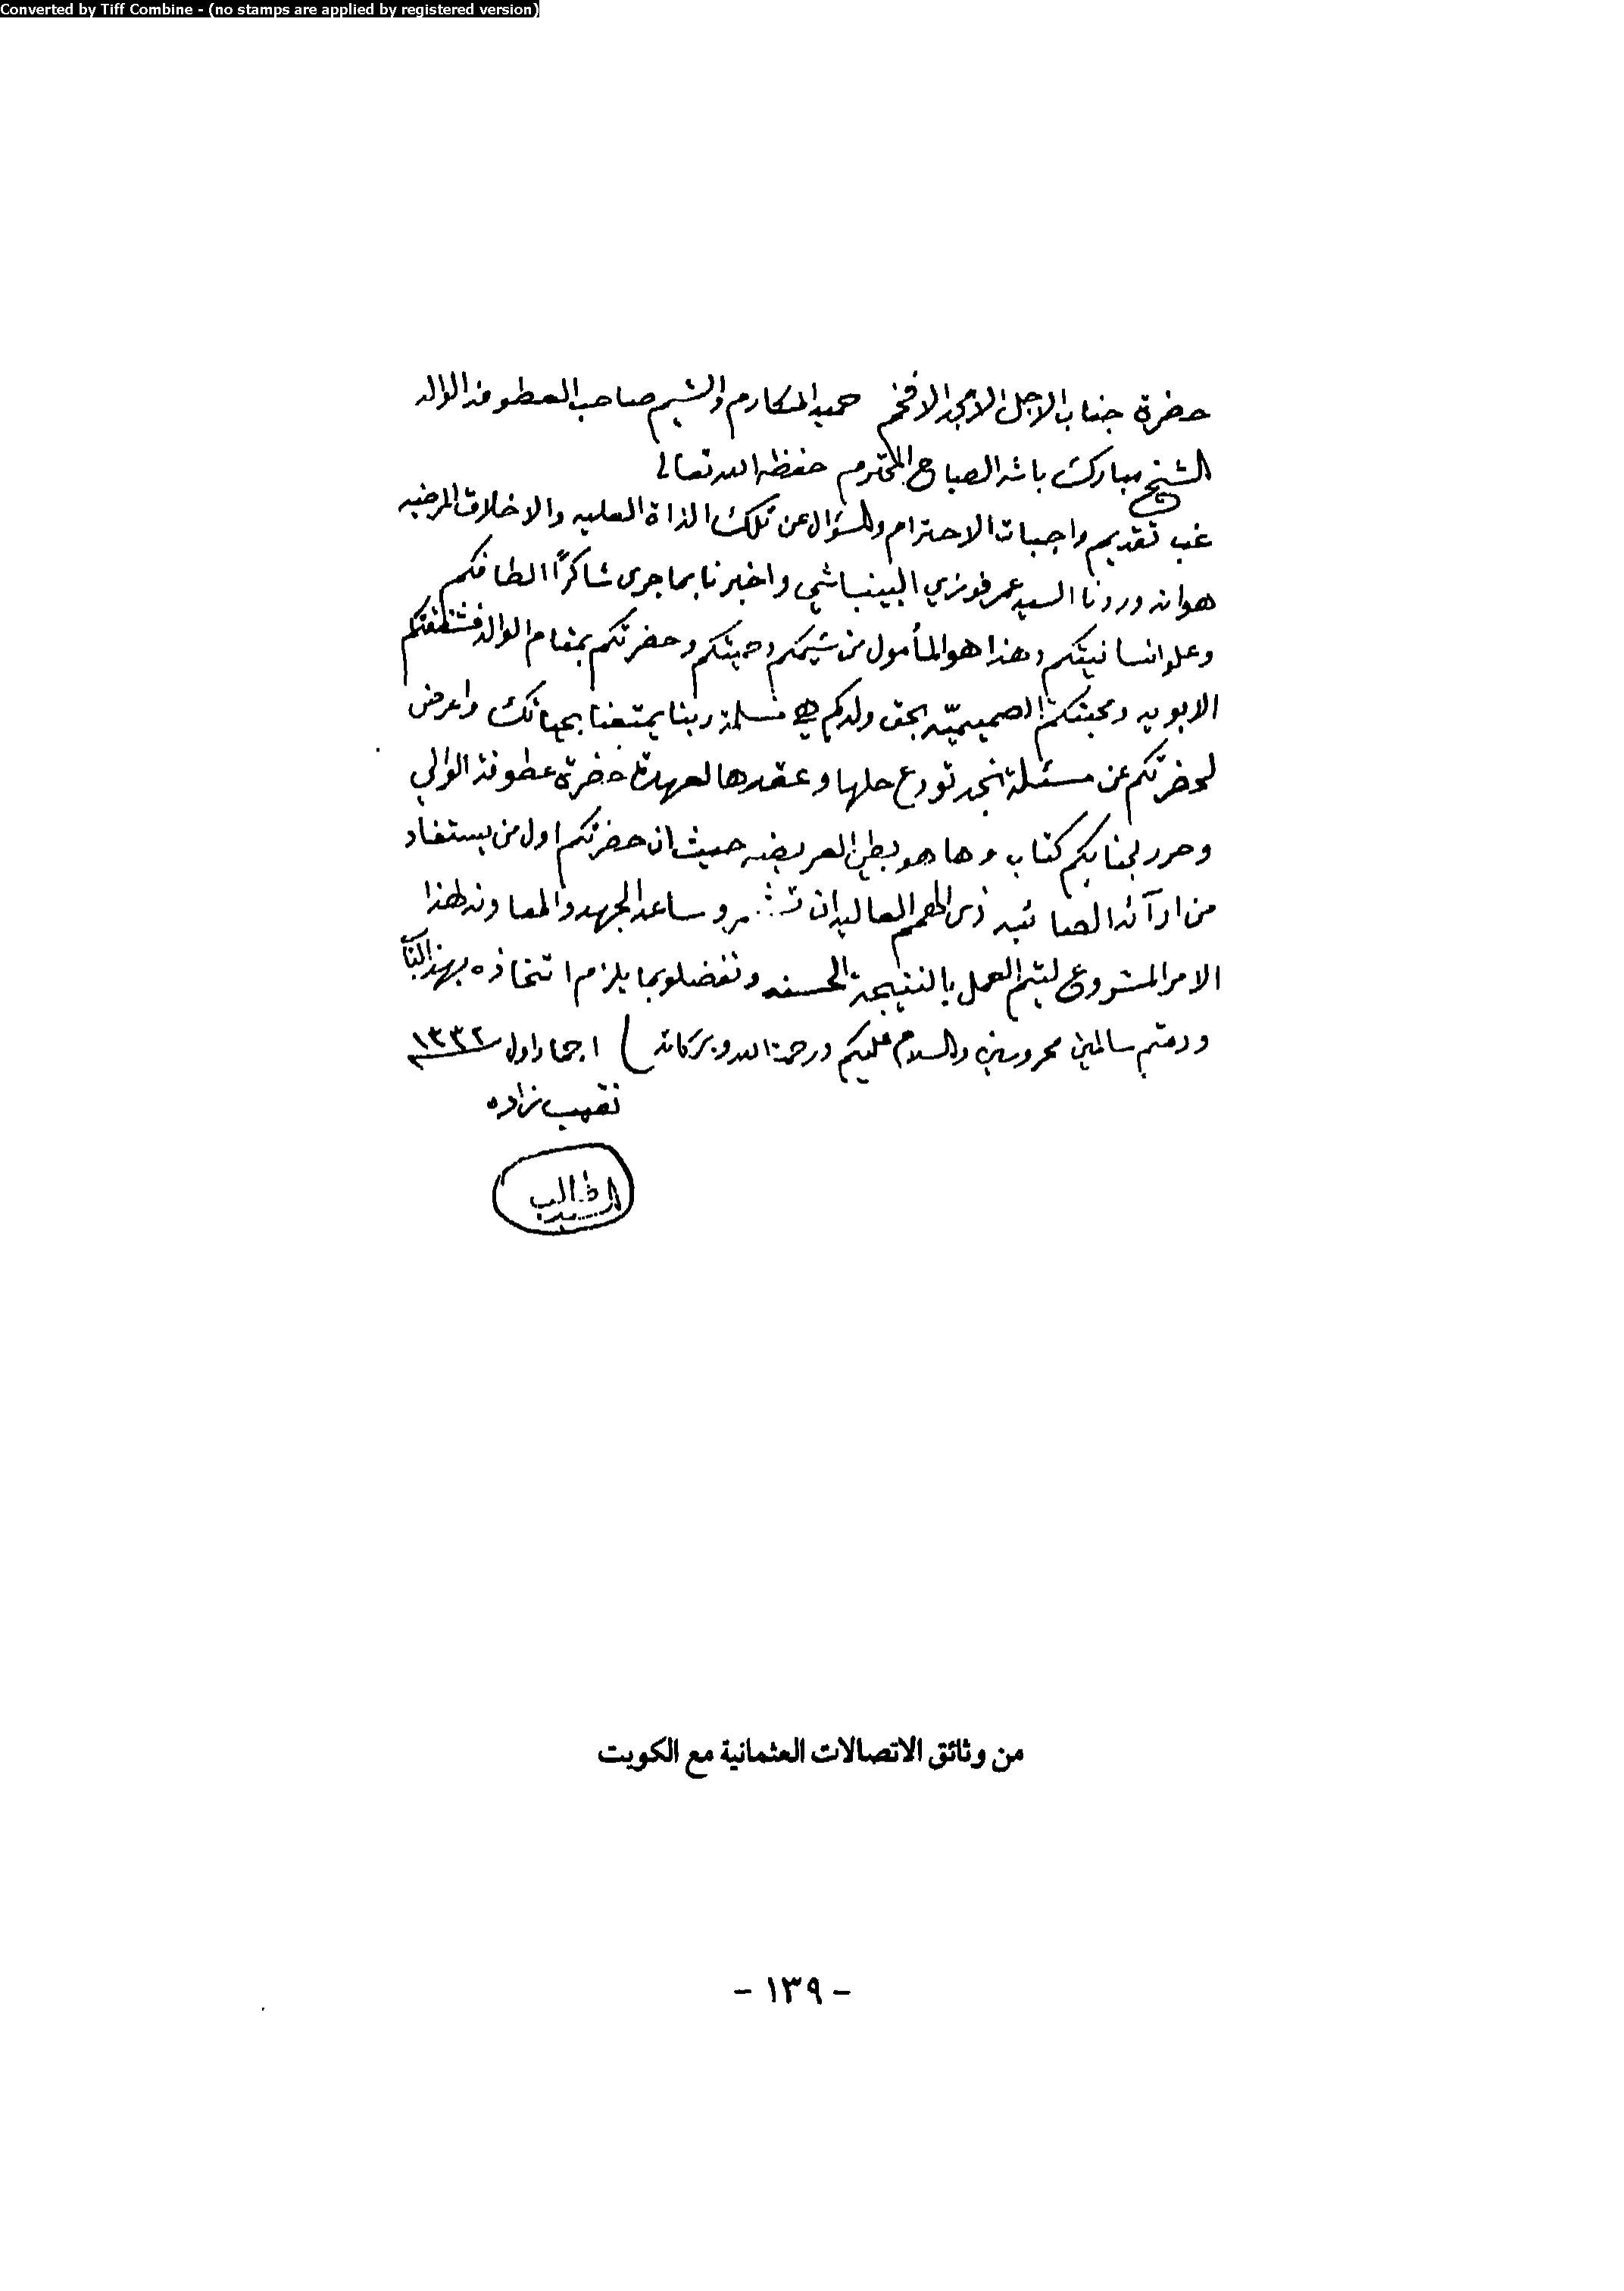 Converted by Tiff Combine - (no stamps are applied by registered version)
حضرة جناب الاجل الامجد الافخم حميد المكارم والشيم صاحب العطوفة الوالد
الشيخ مبارك باشه الصباح المحترم حفظه الله تعالى
غب تقديم واجبات الاحترام والسؤال عن تلك الذاة العليه والاخلاق المرضيه
هو انه وردنا السيد عمر فوزي البينباشي واخبرنا بما جرى شاكرًا الطافكم
وعلو انسانيتكم وهذا هو المأمول من شيمكم وحميتكم وحضرتكم بمقام الوالد فشفقتكم
الابويه ومحبتكم الصميميّه بحق ولدكم هي مسلمة ربنا يمتعنا بحياتك واعرض
لحضرتكم عن مسئلة نجد تودع حلها وعقدها لعهدة حضرة عطوفة الوالي
وحرر لجنابكم كتاب وها هو بطي العريضه حيث ان حضرتكم اول من يستفاد
من ارآئه الصائبه ذى الهمم العاليه ان وساعد الجهد والمعاونه لهذا
الامر المشروع ليتم العمل بالنتيجة الحسنه وتفضلو بما يلزم اتخاذه بهذا الباب
ودمتم سالمين محروسين والسلام عليكم ورحمة الله وبركاته ١ جماد اول ١٣٣٢
نقيب زاده
السيد طالب
من وثائق الاتصالات العثمانية مع الكويت
- ١٣٩ -